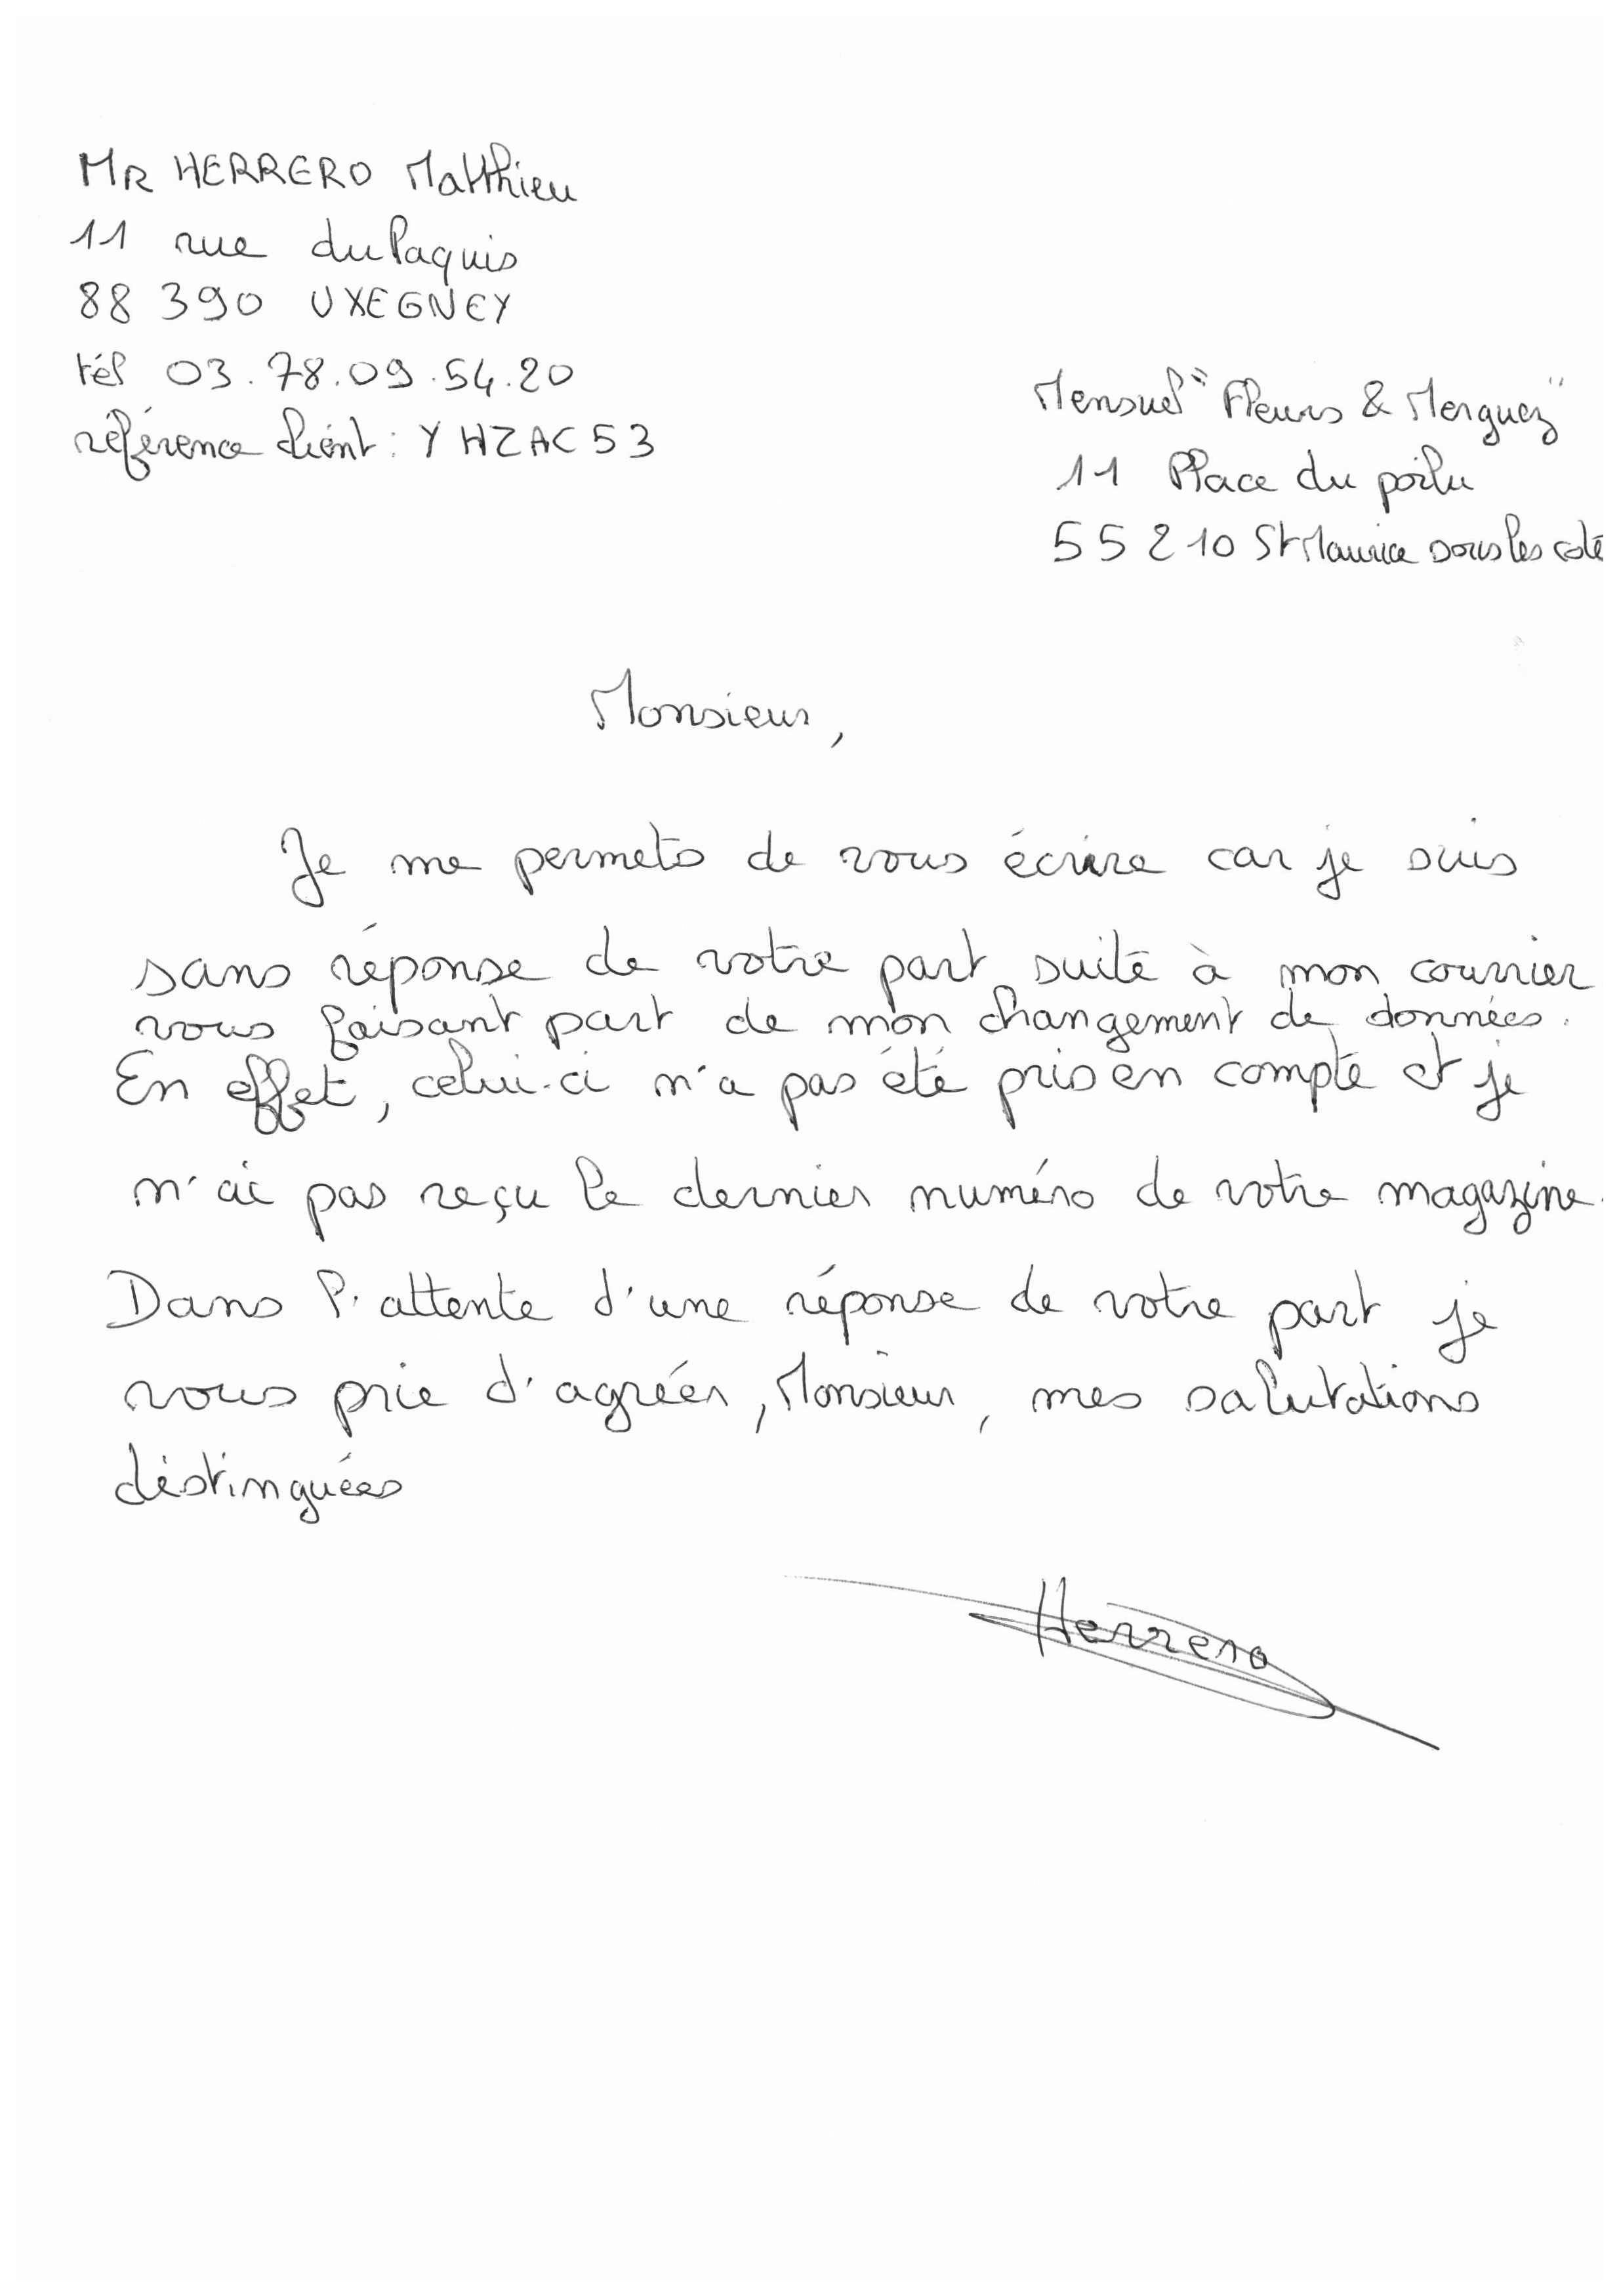 MR HERRERO Matthieu
11 rue du Paquis
88 390 UXEGNEY
tél 03.78.09.54.20
référence client : YHZAC53
Mensuel "Fleurs & Merguez"
11 Place du poilu
55210 St Maurice sous les coté
Monsieur,
Je me permets de vous écrire car je suis
sans réponse de votre part suite à mon courrier
vous faisant part de mon changement de données.
En effet, celui-ci n'a pas été pris en compte et je
n'ai pas reçu le dernier numéro de votre magazine.
Dans l'attente d'une réponse de votre part je
vous prie d'agréer, Monsieur, mes salutations
distinguées
Herrero